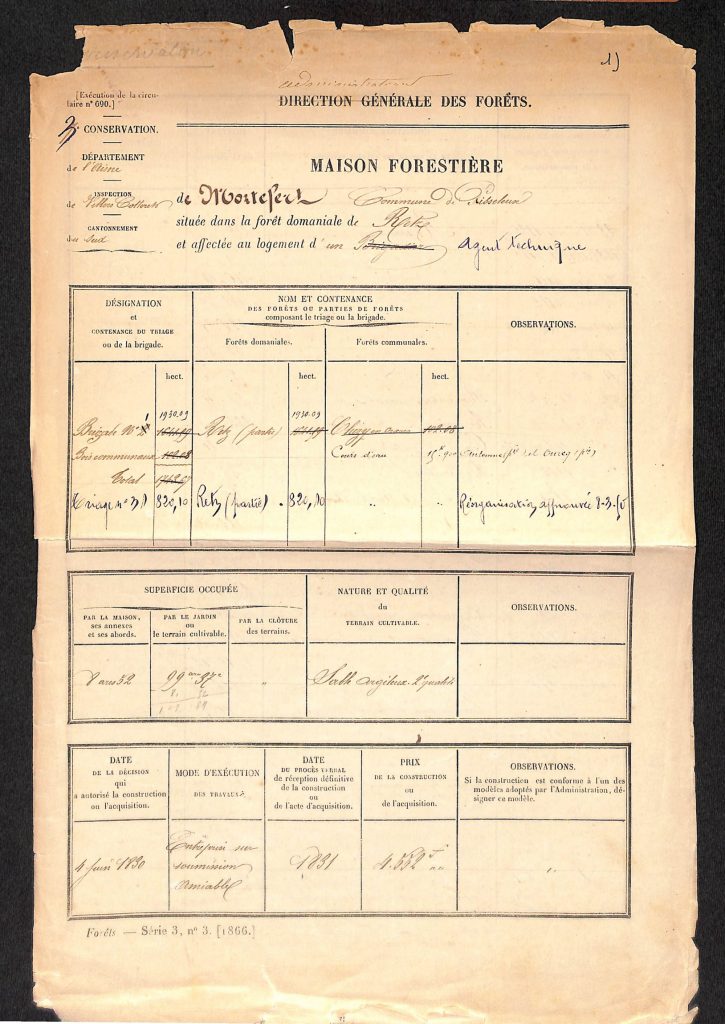 1)
[Exécution de la circulaire n° 690.]
administration
DIRECTION GÉNÉRALE DES FORÊTS.
3 CONSERVATION.
DÉPARTEMENT
de l'Aisne
INSPECTION
de Villers Cotterets
CANTONNEMENT
du Sud
MAISON FORESTIÈRE
de Mortefert Commune de
située dans la forêt domaniale de Retz
et affectée au logement d'un Brigadier Agent technique
DÉSIGNATION
et
CONTENANCE DU TRIAGE
ou de la brigade.
NOM ET CONTENANCE
DES FORÊTS OU PARTIES DE FORÊTS
composant le triage ou la brigade.
Forêts domaniales.
Forêts communales.
OBSERVATIONS.
hect. hect. hect.
1930.09 1930.09
Brigade N° 1 Retz (partie)
Bois communaux 102.08 Cours d'eau
Total
Triage n° 31 820,10 Retz (partie) 820,10 " " Réorganisation approuvée 8-3-50
SUPERFICIE OCCUPÉE
PAR LA MAISON,
ses annexes
et ses abords.
PAR LE JARDIN
ou
le terrain cultivable.
PAR LA CLÔTURE
des terrains.
NATURE ET QUALITÉ
du
TERRAIN CULTIVABLE.
OBSERVATIONS.
8 ares 52 " Sable argileux 2e qualité
DATE
DE LA DÉCISION
qui
a autorisé la construction
ou l'acquisition.
MODE D'EXÉCUTION
DES TRAVAUX.
DATE
DU PROCÈS VERBAL
de réception définitive
de la construction
ou
de l'acte d'acquisition.
PRIX
DE LA CONSTRUCTION
ou
de l'acquisition.
OBSERVATIONS.
Si la construction est conforme à l'un des
modèles adoptés par l'Administration, désigner ce modèle.
4 Juin 1830
Entreprise sur
soumission
amiable
1831
4.552 f
"
Forêts — Série 3, n° 3. [1866.]